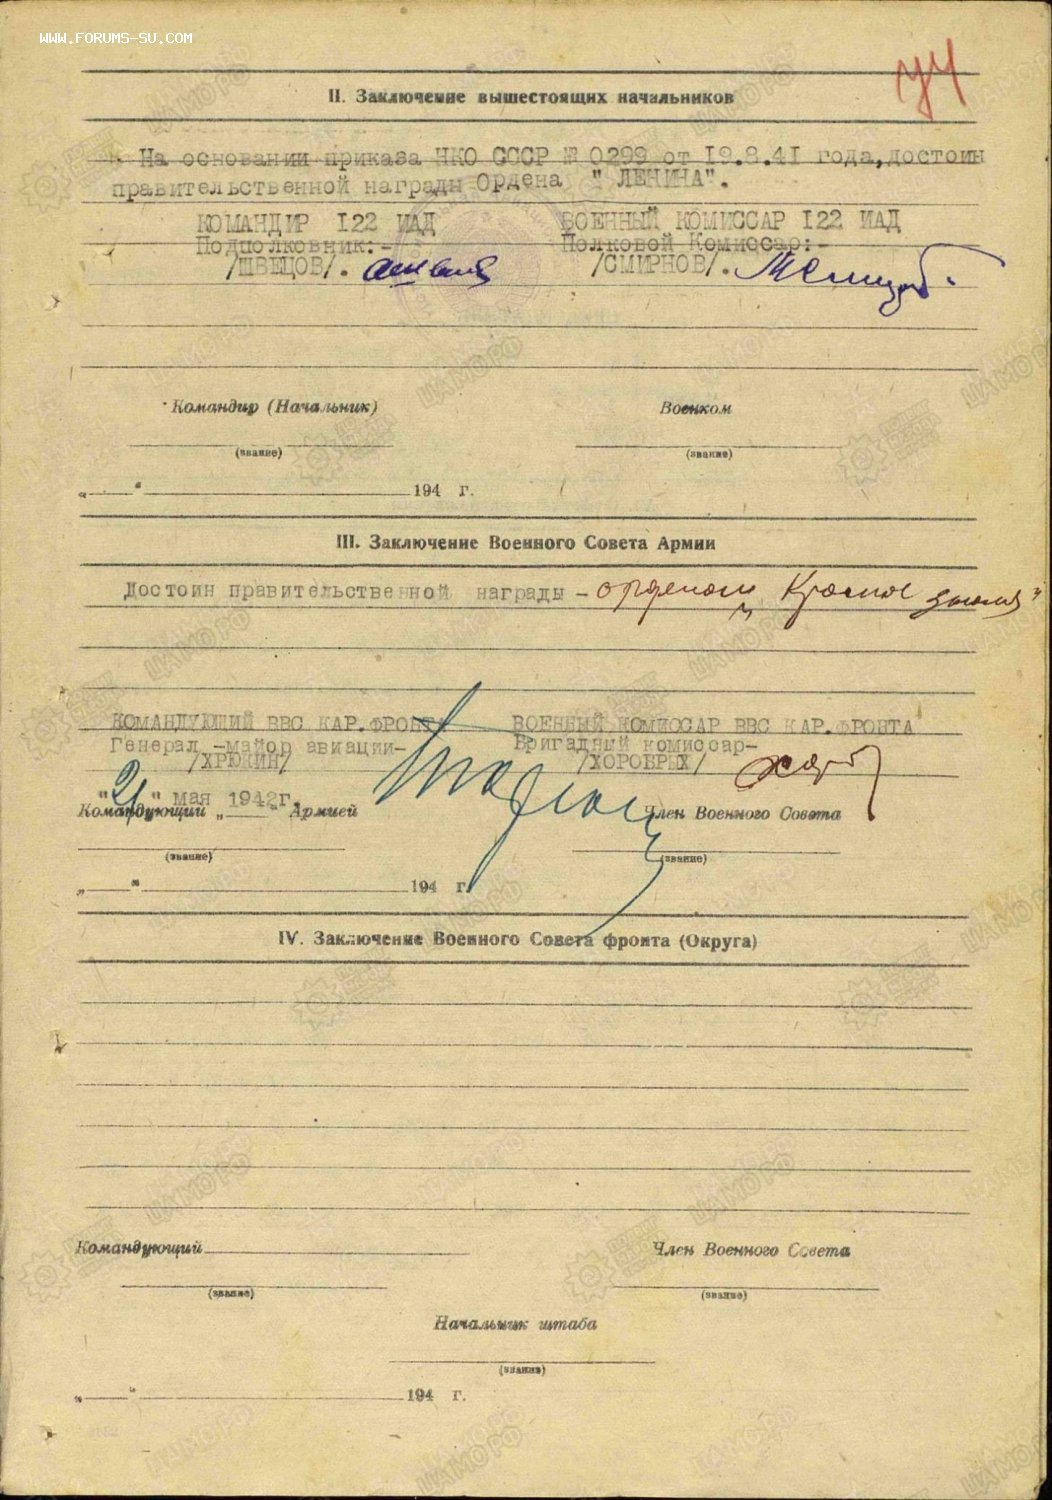 WWW.FORUMS-SU.COM
II. Заключение вышестоящих начальников
На основании приказа НКО СССР № 0299 от 19.8.41 года,достоин
правительственной награды Ордена " ЛЕНИНА".
КОМАНДИР 122 ИАД ВОЕННЫЙ КОМИССАР 122 ИАД
Подполковник:- Полковой Комиссар:-
/ШВЕЦОВ/. /СМИРНОВ/.
Командир (Начальник) Военком
(звание) (звание)
„ “ 194 г.
III. Заключение Военного Совета Армии
Достоин правительственной награды - орденом Красное знамя"
КОМАНДУЮЩИЙ ВВС КАР.ФРОНТА ВОЕННЫЙ КОМИССАР ВВС КАР.ФРОНТА
Генерал -майор авиации- Бригадный комиссар-
/ХРЮКИН/ /ХОРОБРЫХ/
"21" мая 1942г.
Командующий „ “ Армией Член Военного Совета
(звание) (звание)
„ “ 194 г.
IV. Заключение Военного Совета фронта (Округа)
Командующий Член Военного Совета
(звание) (звание)
Начальник штаба
(звание)
„ “ 194 г.